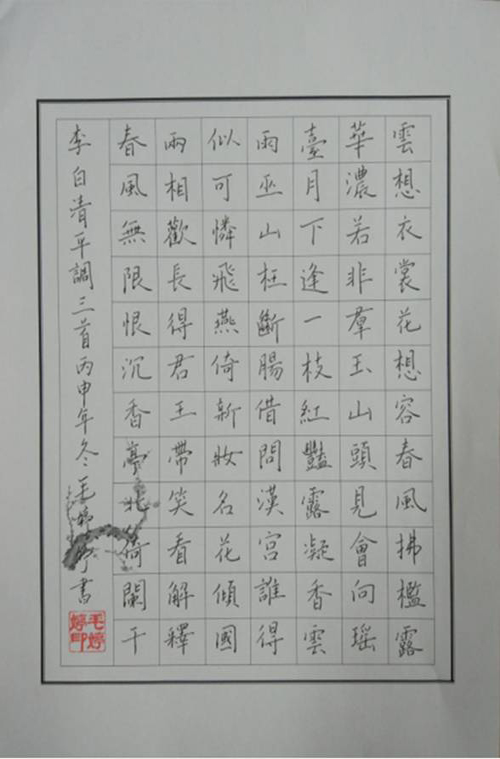 雲想衣裳花想容春風拂檻露
華濃若非羣玉山頭見會向瑶
臺月下逢一枝紅豔露凝香雲
雨巫山枉斷腸借問漢宮誰得
似可憐飛燕倚新妝名花傾國
兩相歡長得君王帶笑看解釋
春風無限恨沉香亭北倚闌干
李白清平調三首丙申年冬毛婷婷書
毛婷婷印